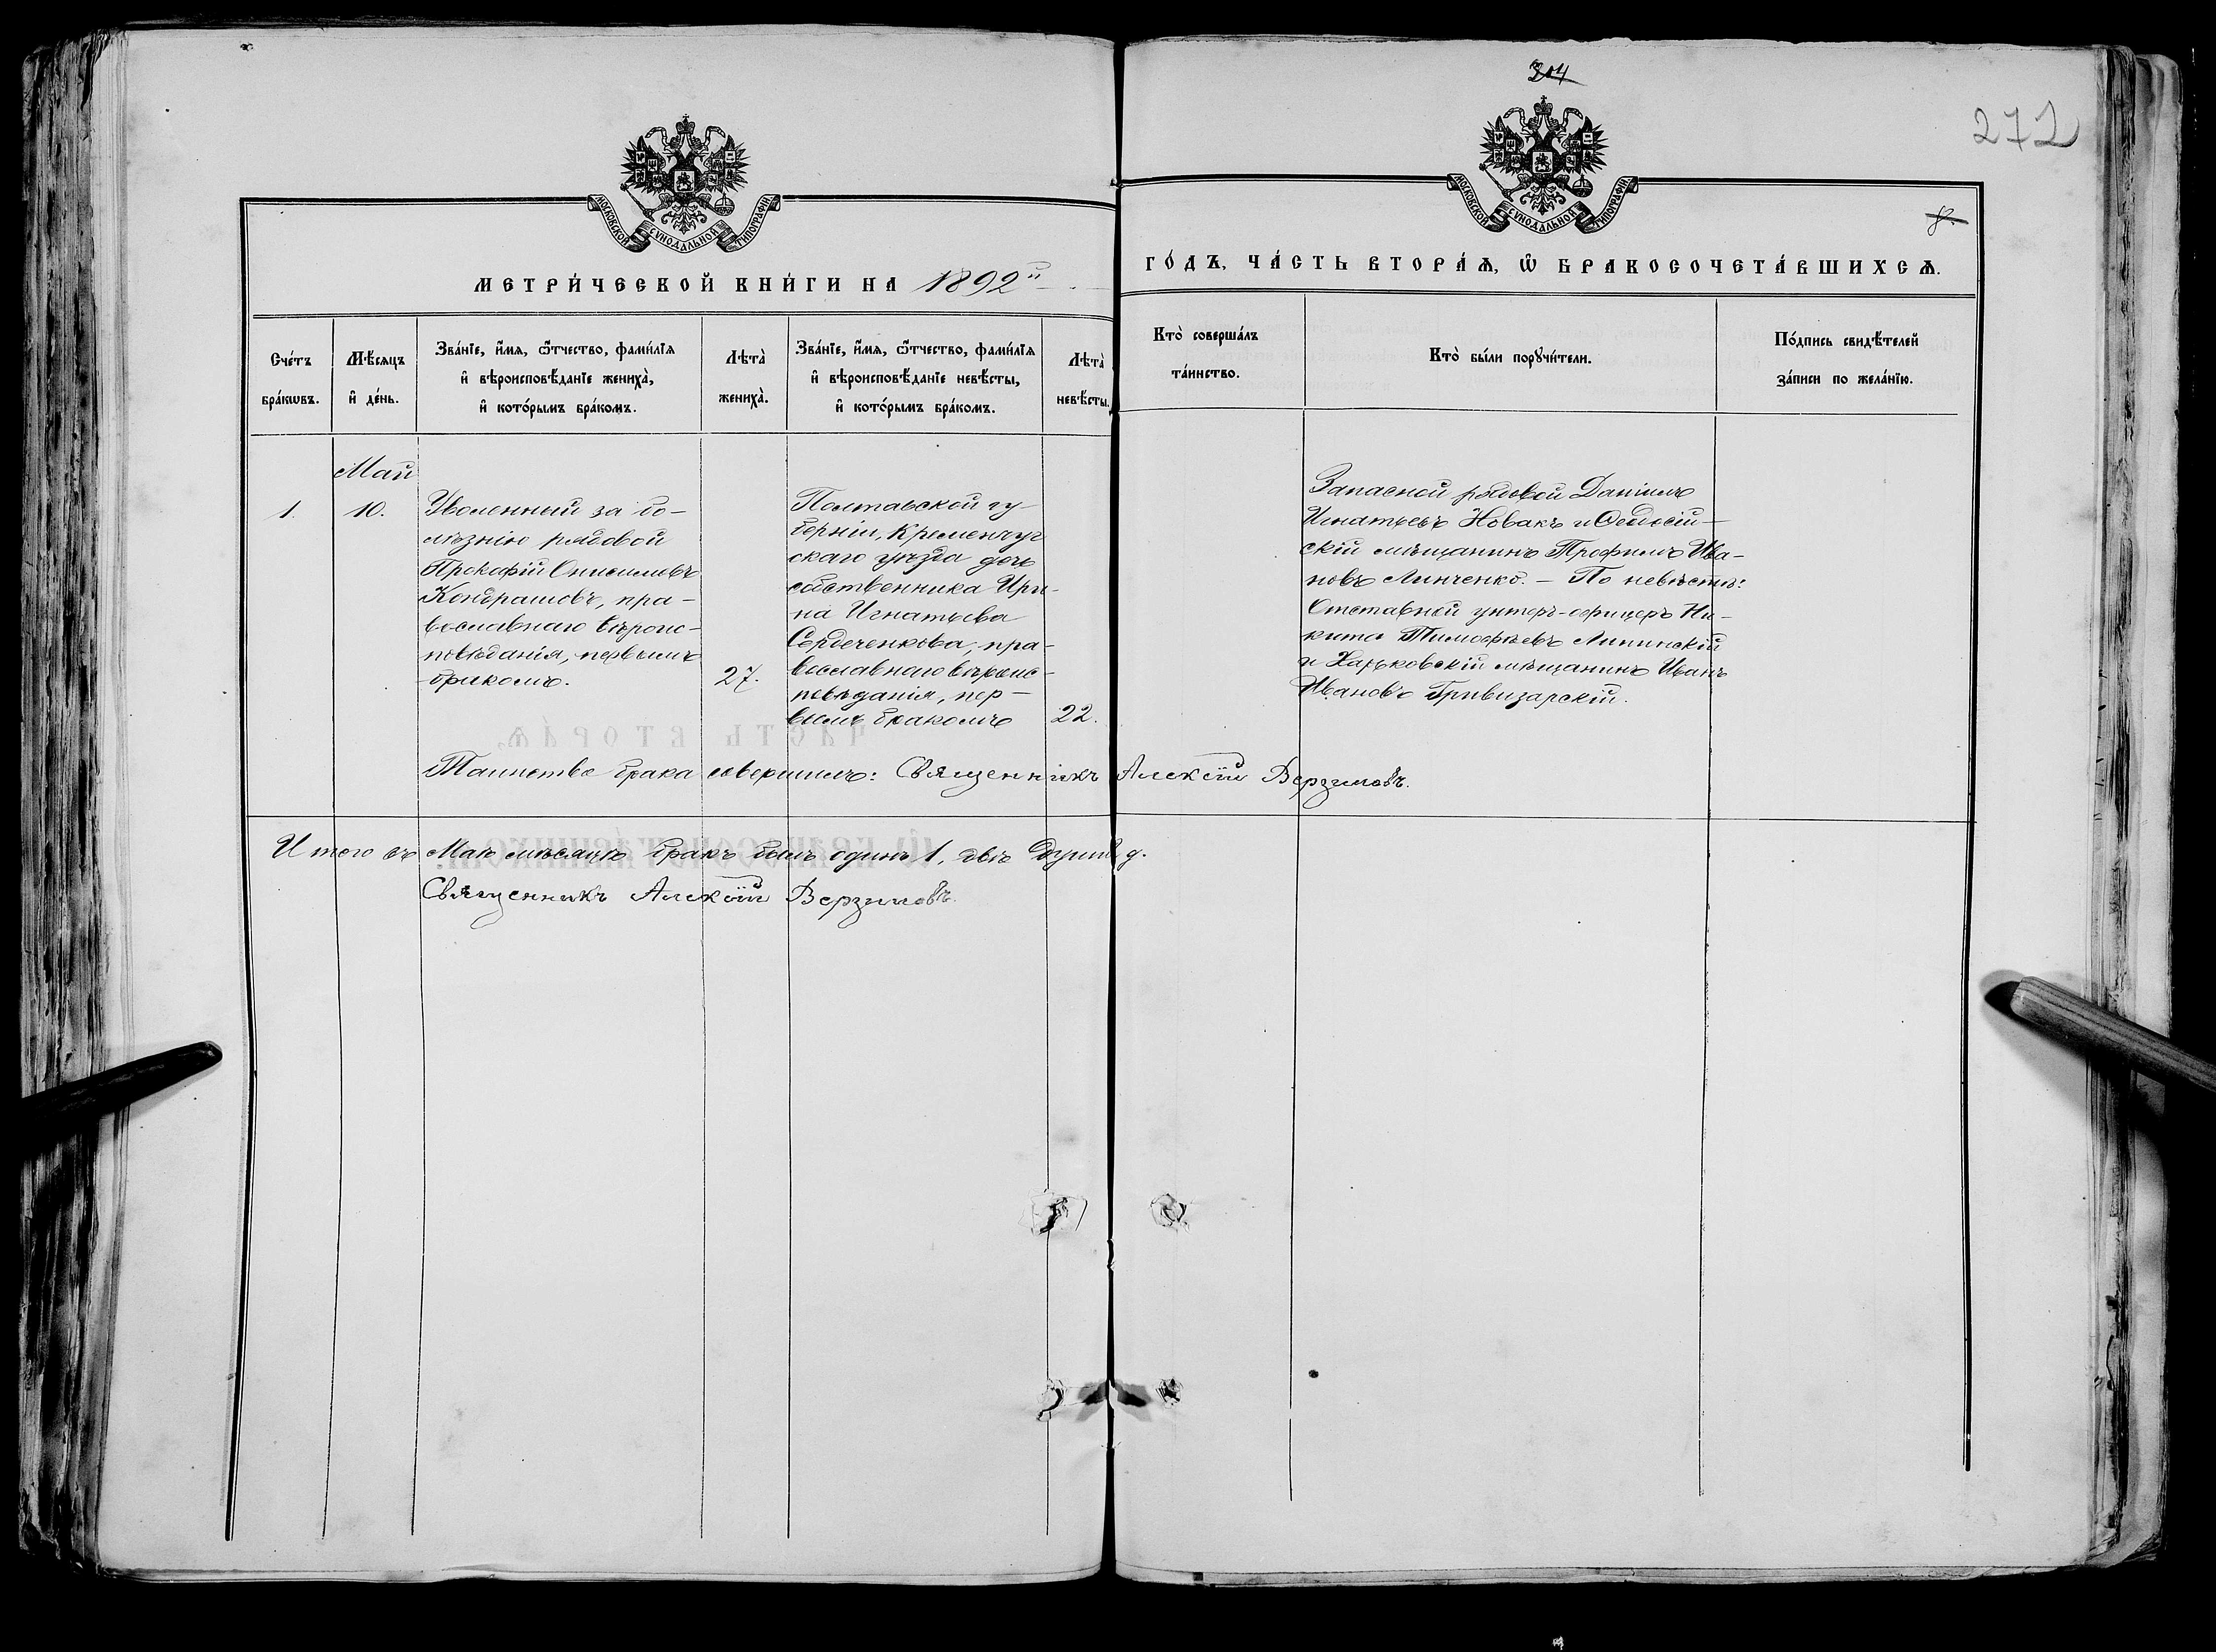 304
272
МОСКОВСКОЙ СѴНОДАЛЬНОЙ ТИПОГРАФІИ
МОСКОВСКОЙ СѴНОДАЛЬНОЙ ТИПОГРАФІИ
МЕТРИ́ЧЕСКОЙ КНИ́ГИ НА 1892й
ГО́ДЪ, ЧА́СТЬ ВТОРА́Ѧ, Ѽ БРАКОСОЧЕТА́ВШИХСѦ.
Сче́тъ бра́кѡвъ.
Мѣ́сяцъ и҆ де́нь.
Зва́нїе, и҆́мя, ѻ҆́тчество, фами́лїя и҆ вѣроисповѣ́данїе жениха̀, и҆ кото́рымъ бра́комъ.
Лѣта̀ жениха̀.
Зва́нїе, и҆́мя, ѻ҆́тчество, фами́лїя и҆ вѣроисповѣ́данїе невѣ́сты, и҆ кото́рымъ бра́комъ.
Лѣта̀ невѣ́сты.
Кто̀ соверша́лъ та́инство.
Кто̀ бы́ли порꙋчи́тели.
По́дпись свидѣ́телей за́писи по жела́нїю.
Май
1.
10.
Уволенный за бо-
лѣзнію рядовой
Прокофій Онисимовъ
Кондрашовъ, пра-
вославнаго вѣроис-
повѣданія, первымъ
бракомъ.
27.
Полтавской гу-
берніи, Кременчуг
скаго уѣзда дочь
собственника Ири-
на Игнатьева
Сердеченкова, пра-
вославнаго вѣроис-
повѣданія, пер-
вымъ бракомъ
22.
Запасной рядовой Даніилъ
Игнатьевъ Новакъ и Ѳеодосій-
скій мѣщанинъ Трофимъ Ива-
новъ Линченко. – По невѣстѣ:
Отставной унтеръ-офицеръ Ни-
кита Тимоѳеевъ Липинскій
и Харьковскій мѣщанинъ Иванъ
Ивановъ Гривизарскій.
Таинство брака совершилъ: Священникъ Алексій Верзиловъ.
Итого въ Маѣ мѣсяцѣ бракъ былъ одинъ 1.
Священникъ Алексій Верзиловъ.